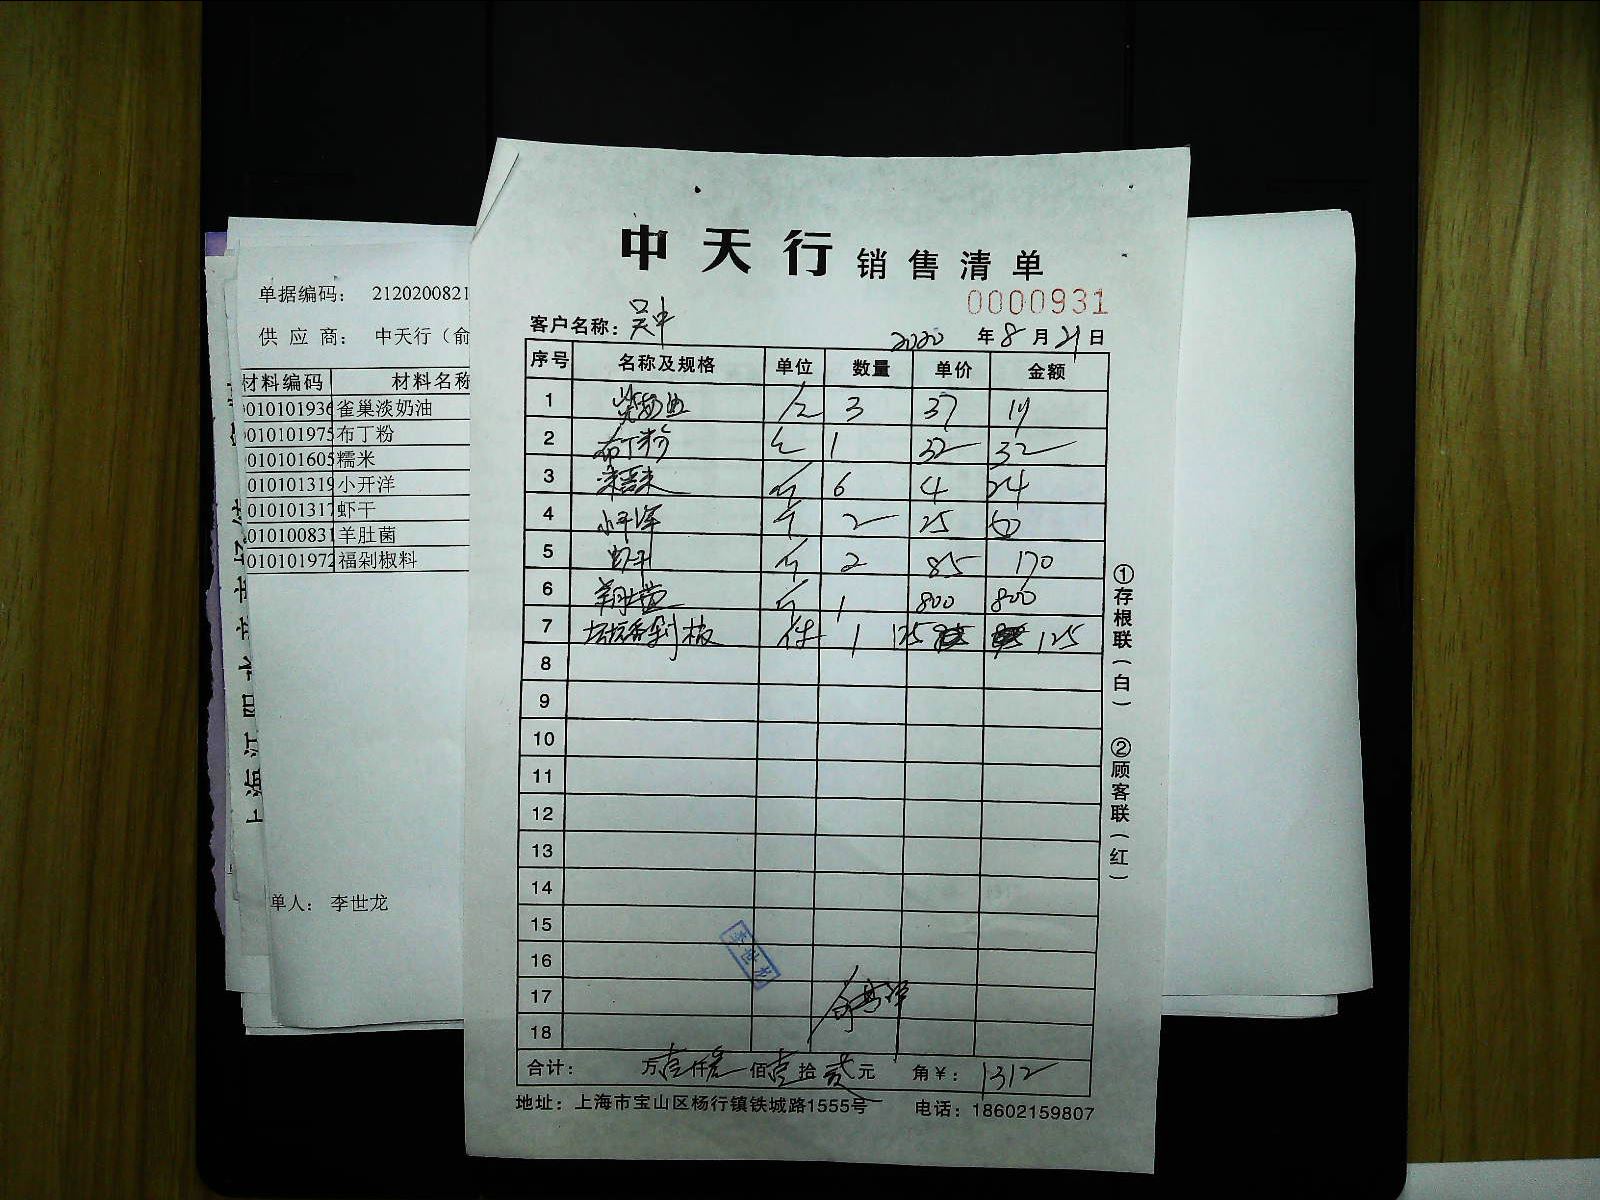 中天行 销售清单
0000931
客户名称：吴中
2020 年 8 月 21 日
序号 名称及规格 单位 数量 单价 金额
1 3 37 111
2 布丁粉 1 32 32
3 6 4 24
4 小开洋 斤 2 25 50
5 虾干 斤 2 85 170
6 羊肚菌 斤 1 800 800
7 坛坛香剁椒 件 1 125 125
8
9
10
11
12
13
14
15
16
17
18
李世龙
合计： 万壹仟叁佰壹拾贰元 角¥：1312
地址：上海市宝山区杨行镇铁城路1555号 电话：18602159807
①存根联（白） ②顾客联（红）
单据编码： 212020082１
供应商： 中天行（俞
材料编码 材料名称
010101936 雀巢淡奶油
010101975 布丁粉
010101605 糯米
010101319 小开洋
010101317 虾干
010100831 羊肚菌
010101972 福剁椒料
单人： 李世龙